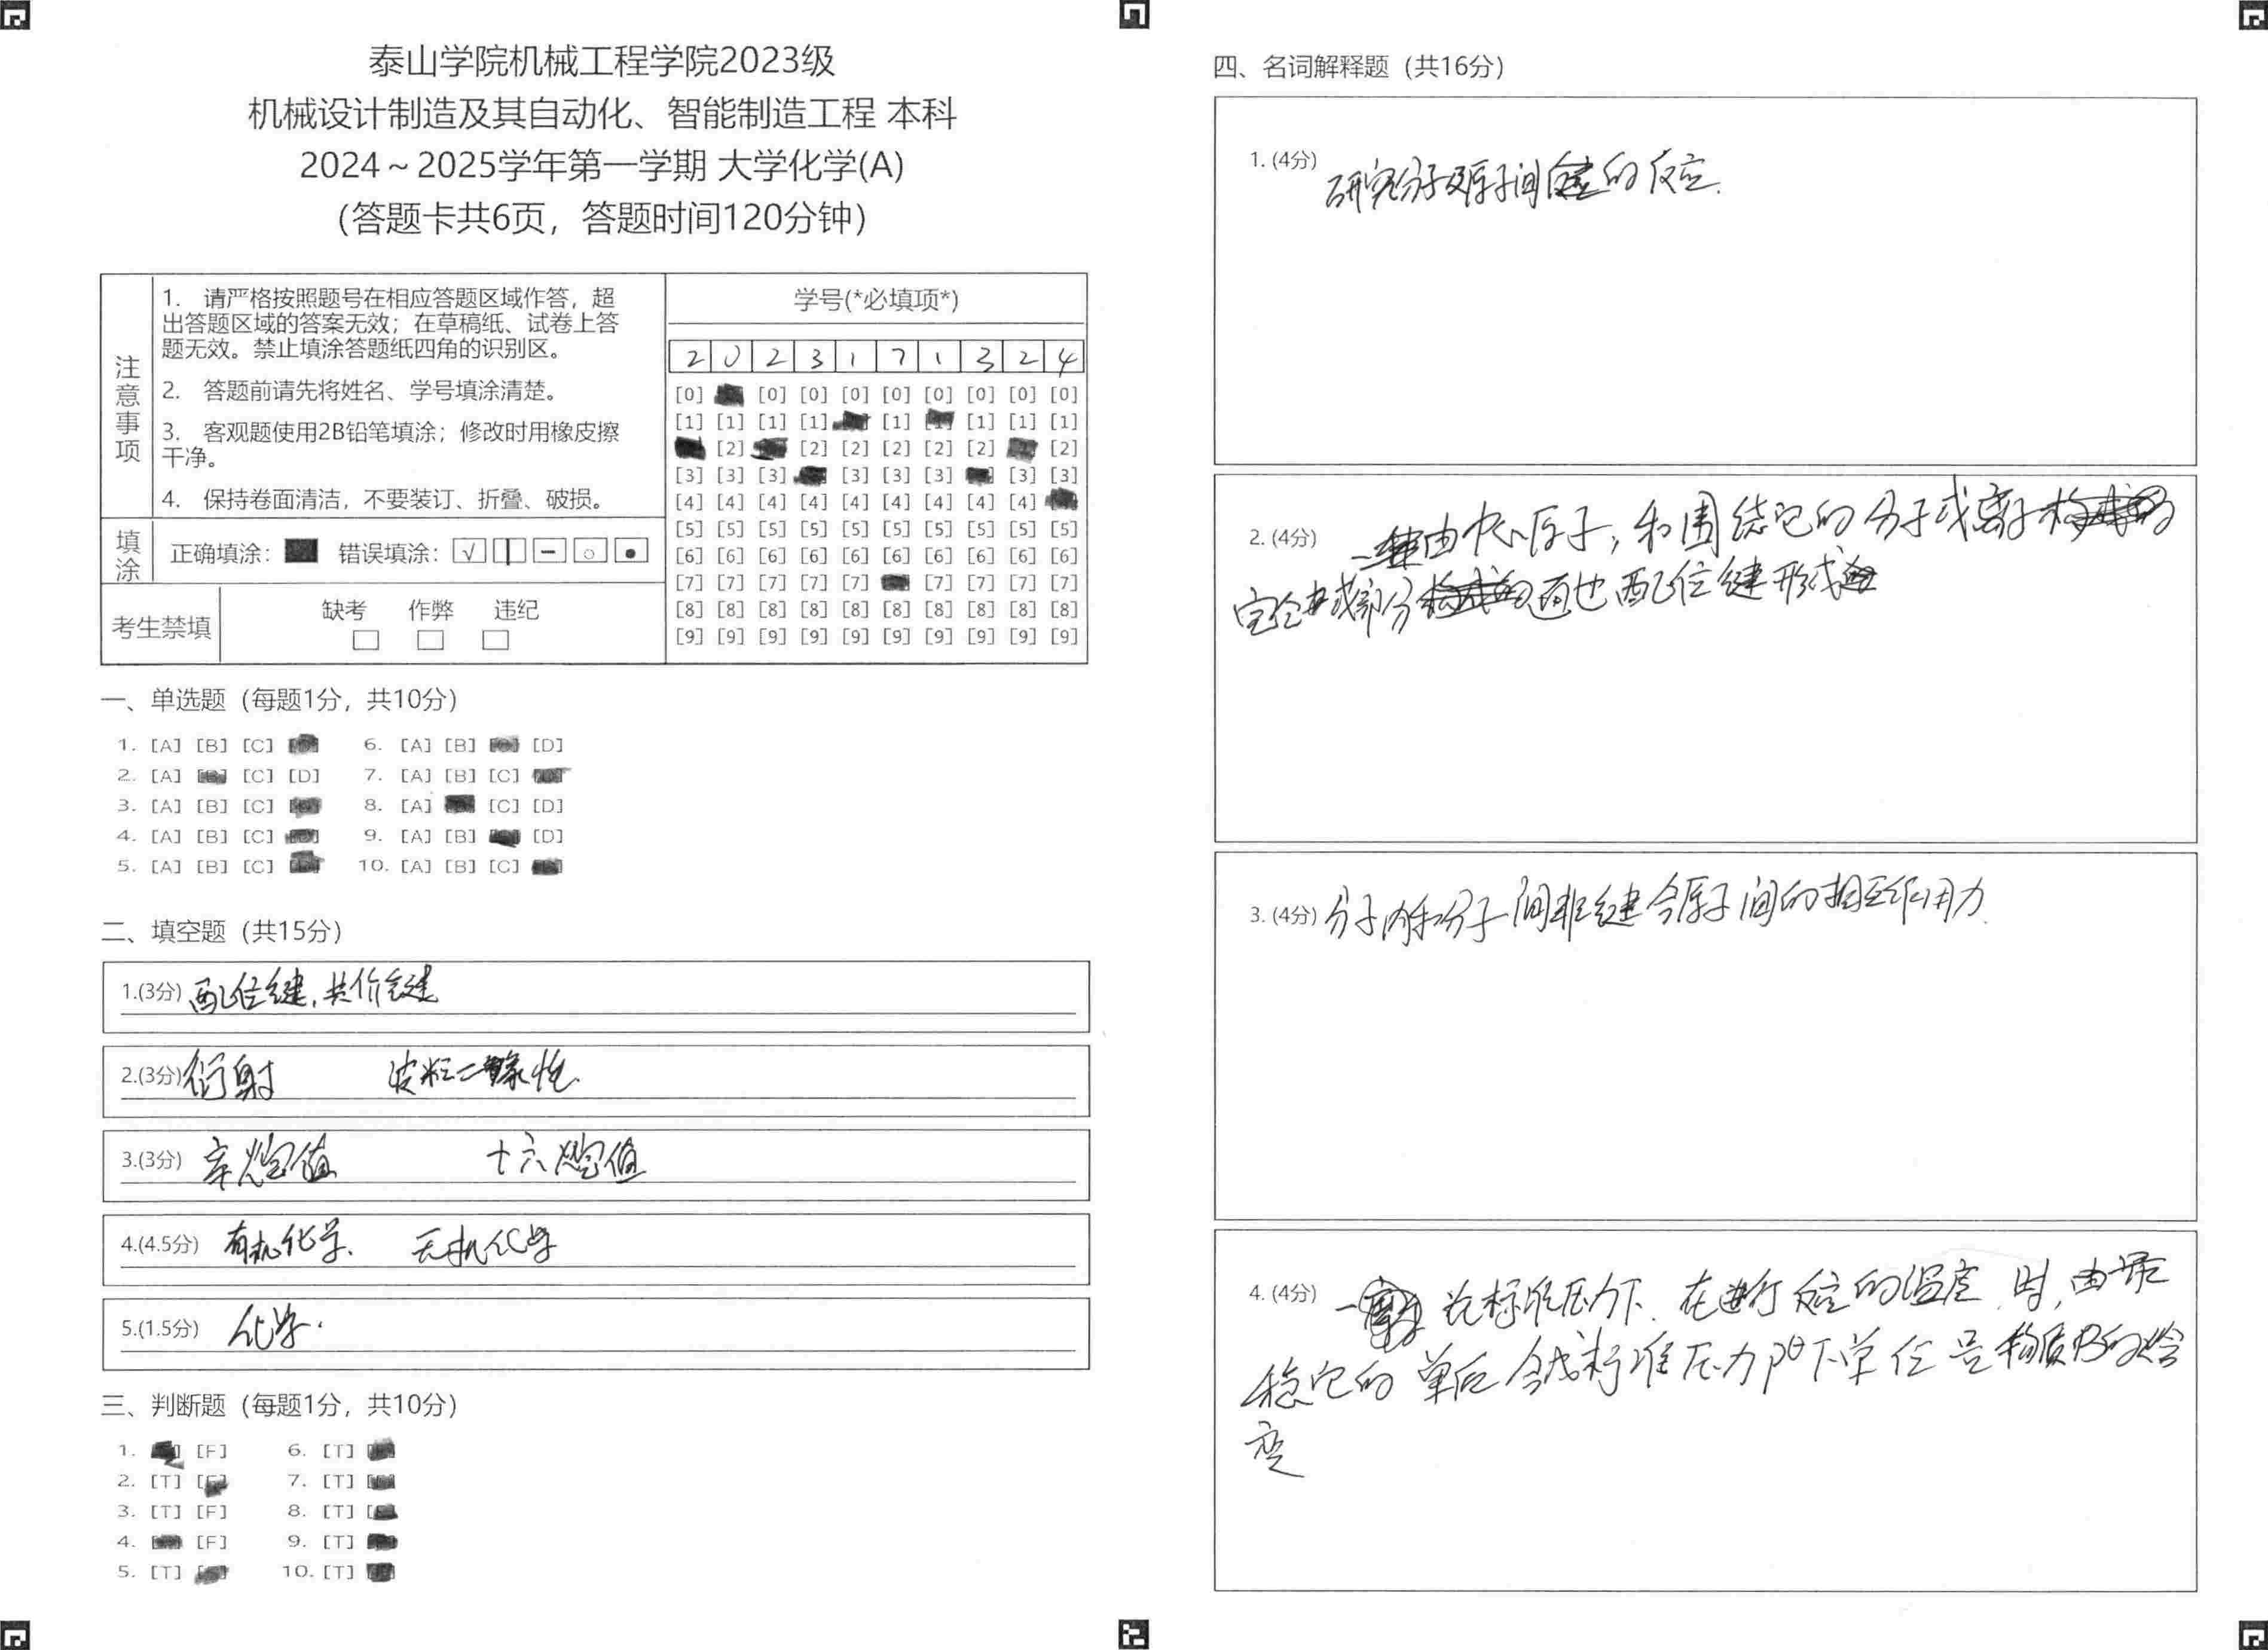 泰山学院机械工程学院2023级
机械设计制造及其自动化、智能制造工程 本科
2024～2025学年第一学期 大学化学(A)
（答题卡共6页，答题时间120分钟）
注意事项
1. 请严格按照题号在相应答题区域作答，超
出答题区域的答案无效；在草稿纸、试卷上答
题无效。禁止填涂答题纸四角的识别区。
2. 答题前请先将姓名、学号填涂清楚。
3. 客观题使用2B铅笔填涂；修改时用橡皮擦
干净。
4. 保持卷面清洁，不要装订、折叠、破损。
填涂
正确填涂： 错误填涂：
考生禁填
缺考 作弊 违纪
学号(*必填项*)
2 0 2 3 1 7 1 3 2 4
[0] [0] [0] [0] [0] [0] [0] [0] [0]
[1] [1] [1] [1] [1] [1] [1] [1]
[2] [2] [2] [2] [2] [2] [2]
[3] [3] [3] [3] [3] [3] [3] [3]
[4] [4] [4] [4] [4] [4] [4] [4] [4]
[5] [5] [5] [5] [5] [5] [5] [5] [5] [5]
[6] [6] [6] [6] [6] [6] [6] [6] [6] [6]
[7] [7] [7] [7] [7] [7] [7] [7] [7]
[8] [8] [8] [8] [8] [8] [8] [8] [8] [8]
[9] [9] [9] [9] [9] [9] [9] [9] [9] [9]
一、单选题（每题1分，共10分）
1. [A] [B] [C] 6. [A] [B] [D]
2. [A] [C] [D] 7. [A] [B] [C]
3. [A] [B] [C] 8. [A] [C] [D]
4. [A] [B] [C] 9. [A] [B] [D]
5. [A] [B] [C] 10. [A] [B] [C]
二、填空题（共15分）
1.(3分) 配位键，共价键
2.(3分) 衍射 波粒二象性
3.(3分) 辛烷值 十六烷值
4.(4.5分) 有机化学. 无机化学
5.(1.5分) 化学.
三、判断题（每题1分，共10分）
1. [F] 6. [T]
2. [T] 7. [T]
3. [T] [F] 8. [T]
4. [F] 9. [T]
5. [T] 10. [T]
四、名词解释题（共16分）
1. (4分) 研究分子及原子间键的反应.
2. (4分) 由中心原子，和围绕它的分子或离子
完全或部分 配位键形成
3. (4分) 分子内和分子间非键合原子间的相互作用力.
4. (4分) 在标准压力下. 在进行反应的温度时，由最
稳定的单质合成标准压力pθ下单位量物质B的焓
变